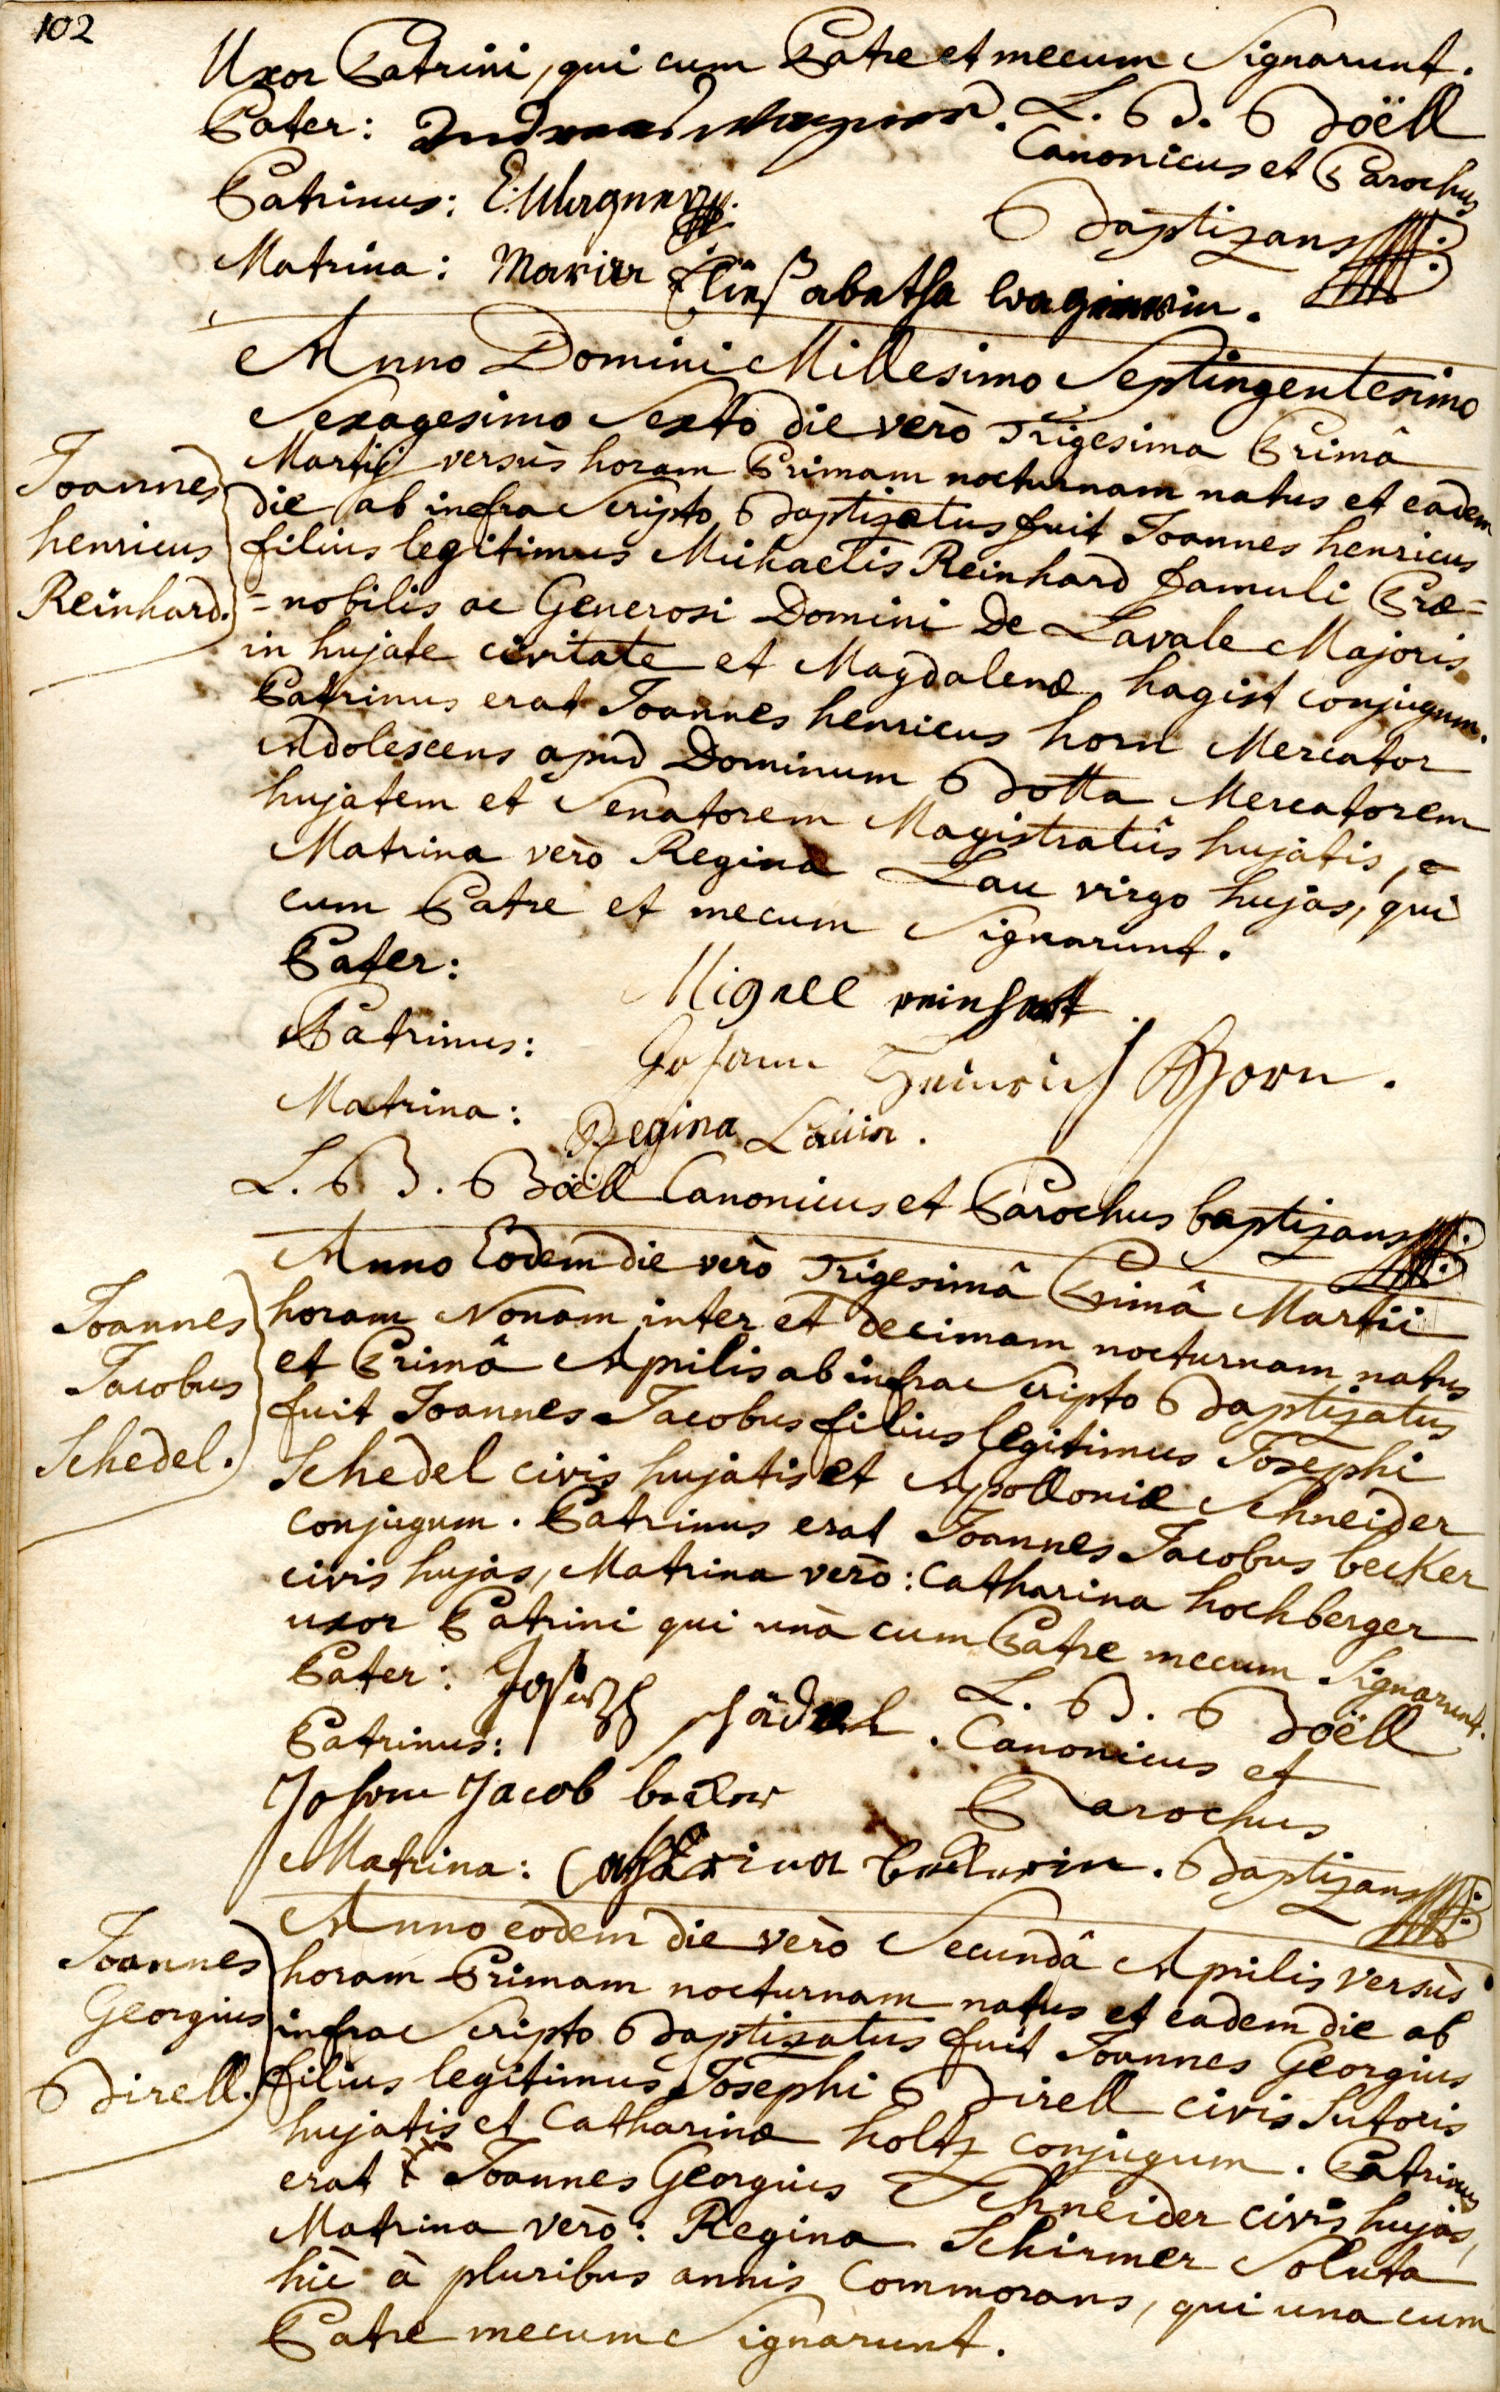 102
Uxor Patrini, qui cum Patre et mecum Signarunt.
Pater: Andreas Wagner. L. B. Böell
Canonicus et Parochus
Patrinus: E: Wagner
Baptizans
Matrina: Maria Elisabetha Wagnerin.
Anno Domini Millesimo Septingentesimo
Sexagesimo Sexto die verò Trigesima Primâ
Joannes
Martij versùs horam Primam nocturnam natus et eadem
die ab infra Scripto Baptizatus fuit Joannes henricus
henricus
filius legitimus Michaelis Reinhard famuli Præ=
Reinhard.
=nobilis ac Generosi Domini De Lavale Majoris
in hujate civitate et Magdalenæ hagist conjugum.
Patrinus erat Joannes henricus horn Mercator
Adolescens apud Dominum Botta Mercatorem
hujatem et Senatorem Magistratûs hujatis,
Matrina verò Regina Lau virgo hujas, qui
cum Patre et mecum Signarunt.
Pater: Migaell reinhart
Patrinus: Johann Heinrich Horn.
Matrina: Regina Lauin.
L. B. Böell Canonicus et Parochus baptizans
Anno Eodem die verò Trigesimâ Primâ Martii
Joannes
horam Nonam inter et decimam nocturnam natus
Jacobus
et Primâ Aprilis ab infra Scripto Baptizatus
fuit Joannes Jacobus filius legitimus Josephi
Schedel.
Schedel civis hujatis et Apolloniæ Schneider
conjugum. Patrinus erat Joannes Jacobus becker
civis hujas, Matrina verò: Catharina hochberger
uxor Patrini qui unà cum Patre mecum Signarunt.
Pater: Joseph schädel. L. B. Böell
Patrinus: Canonicus et
Johann Jacob becker Parochus
Matrina: Catharina beckerin. Baptizans
Anno eodem die verò Secundâ Aprilis versùs
Joannes
horam Primam nocturnam natus et eadem die ab
Georgius
infra Scripto Baptizatus fuit Joannes Georgius
Birell.
filius legitimus Josephi Birell civis Sutoris
hujatis et Catharinæ holtz conjugum. Patrinus
erat Joannes Georgius Schneider civis hujas,
Matrina verò: Regina Schirmer Soluta
hìc à pluribus annis Commorans, qui una cum
Patre mecum Signarunt.